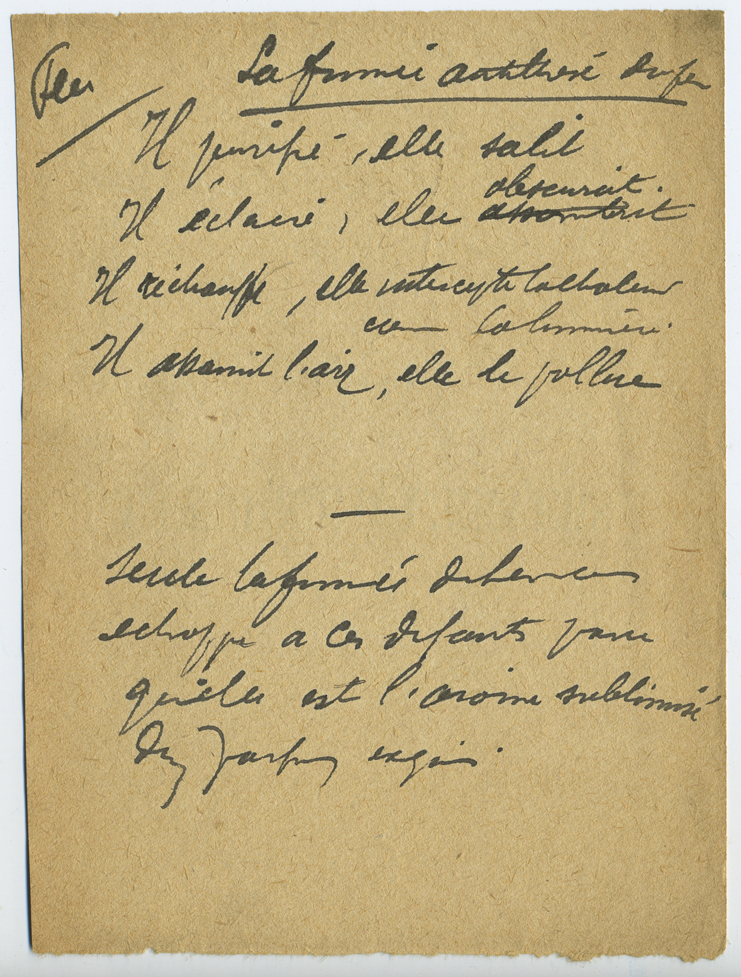 Feu
La fumée antithèse du feu
Il purifie, elle salit
obscurcit.
Il éclaire, elle assombrit
Il réchauffe, elle intercepte la chaleur
la lumière.
Il assainit l'air, elle le pollue
—
Seule la fumée de l'encens
échappe à ces défauts parce
qu'elle est l'arôme sublimisé
d'un parfum exquis.